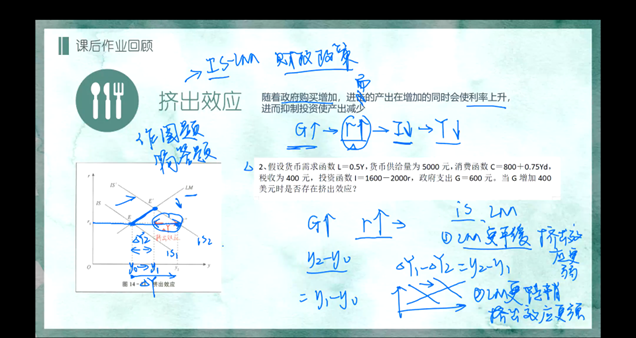 课后作业回顾
IS-LM 财政政策
挤出效应
随着政府购买增加，进行的产出在增加的同时会使利率上升，
进而抑制投资使产出减少
而
G↑ → r↑ → I↓ → Y↓
作图题
简答题
2、假设货币需求函数 L=0.5Y，货币供给量为 5000 元，消费函数 C=800+0.75Yd，
税收为 400 元，投资函数 I=1600-2000r，政府支出 G=600 元。当 G 增加 400
美元时是否存在挤出效应？
IS
IS
LM
E
is₁
is₂
ΔY₂
y₀→y₁
ΔY
挤出效应
G↑ r↑ →
y₂-y₀
=y₁-y₀
ΔY₁-ΔY₂=y₂-y₁
is LM
①LM更平缓
挤出效应更弱
②LM更陡峭
挤出效应更强